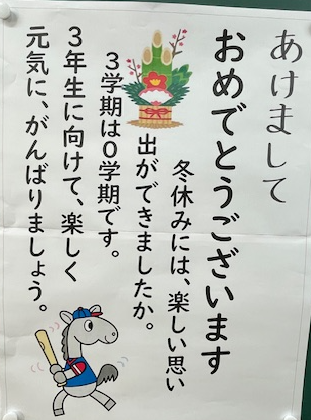 あけまして
おめでとうございます
冬休みには、楽しい思い
出ができましたか。
３学期は０学期です。
３年生に向けて、楽しく
元気に、がんばりましょう。